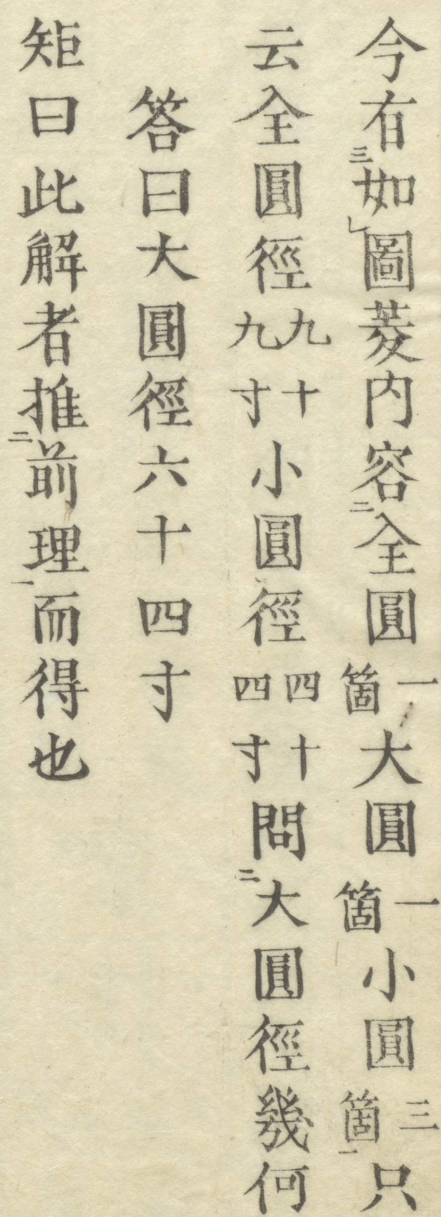 今有三如レ圖菱内容二全圓一箇大圓一箇小圓三箇一只
云全圓徑九十九寸小圓徑四十四寸問二大圓徑幾何
答曰大圓徑六十四寸
矩曰此解者推二前理一而得也